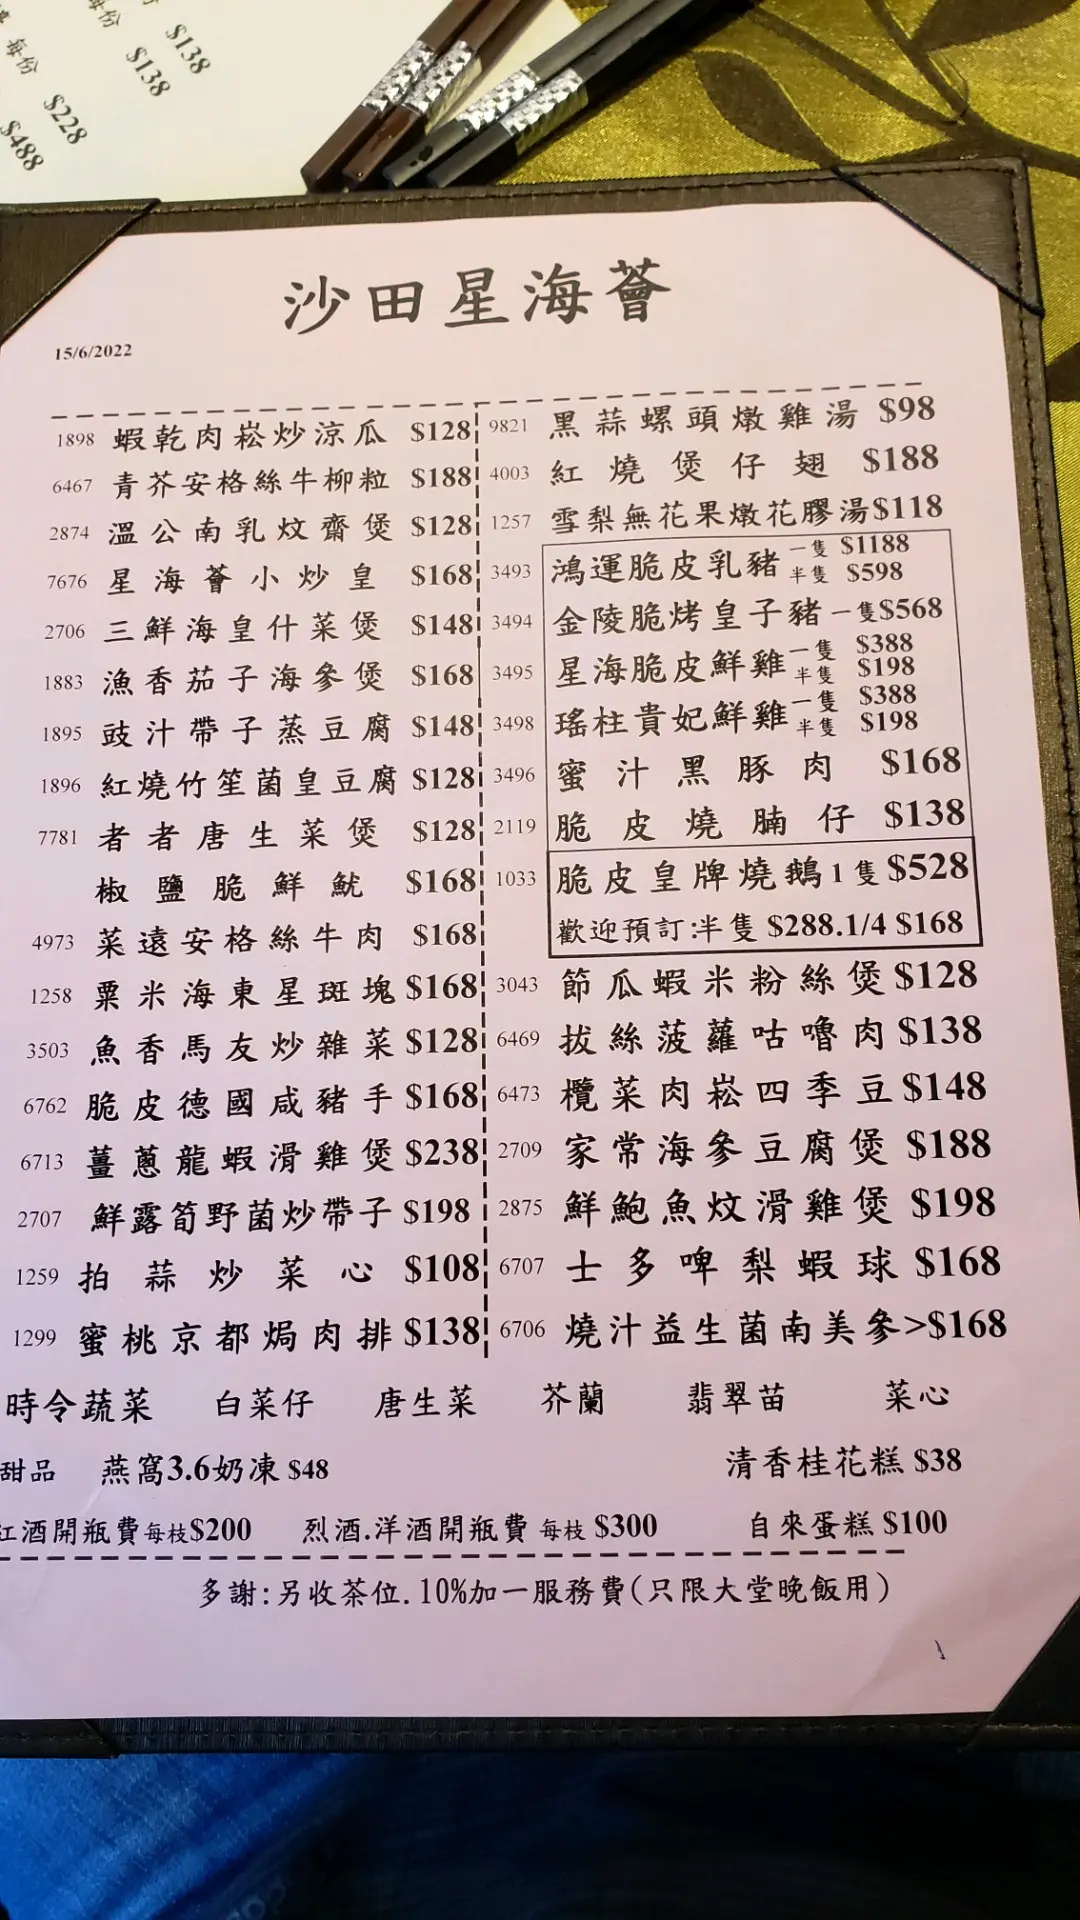 $138
$138
每份
每份 $228
$488
沙田星海薈
15/6/2022
1898 蝦乾肉崧炒涼瓜 $128
6467 青芥安格絲牛柳粒 $188
2874 溫公南乳炆齋煲 $128
7676 星海薈小炒皇 $168
2706 三鮮海皇什菜煲 $148
1883 漁香茄子海參煲 $168
1895 豉汁帶子蒸豆腐 $148
1896 紅燒竹笙菌皇豆腐 $128
7781 者者唐生菜煲 $128
椒鹽脆鮮魷 $168
4973 菜遠安格絲牛肉 $168
1258 粟米海東星斑塊 $168
3503 魚香馬友炒雜菜 $128
6762 脆皮德國咸豬手 $168
6713 薑蔥龍蝦滑雞煲 $238
2707 鮮露筍野菌炒帶子 $198
1259 拍蒜炒菜心 $108
1299 蜜桃京都焗肉排 $138
9821 黑蒜螺頭燉雞湯 $98
4003 紅燒煲仔翅 $188
1257 雪梨無花果燉花膠湯 $118
3493 鴻運脆皮乳豬 一隻 $1188
半隻 $598
3494 金陵脆烤皇子豬 一隻 $568
3495 星海脆皮鮮雞 一隻 $388
半隻 $198
3498 瑤柱貴妃鮮雞 一隻 $388
半隻 $198
3496 蜜汁黑豚肉 $168
2119 脆皮燒腩仔 $138
1033 脆皮皇牌燒鵝1隻 $528
歡迎預訂:半隻 $288.1/4 $168
3043 節瓜蝦米粉絲煲 $128
6469 拔絲菠蘿咕嚕肉 $138
6473 欖菜肉崧四季豆 $148
2709 家常海參豆腐煲 $188
2875 鮮鮑魚炆滑雞煲 $198
6707 士多啤梨蝦球 $168
6706 燒汁益生菌南美參>$168
時令蔬菜 白菜仔 唐生菜 芥蘭 翡翠苗 菜心
甜品 燕窩3.6奶凍 $48 清香桂花糕 $38
紅酒開瓶費每枝$200 烈酒.洋酒開瓶費 每枝 $300 自來蛋糕 $100
多謝:另收茶位.10%加一服務費(只限大堂晚飯用)